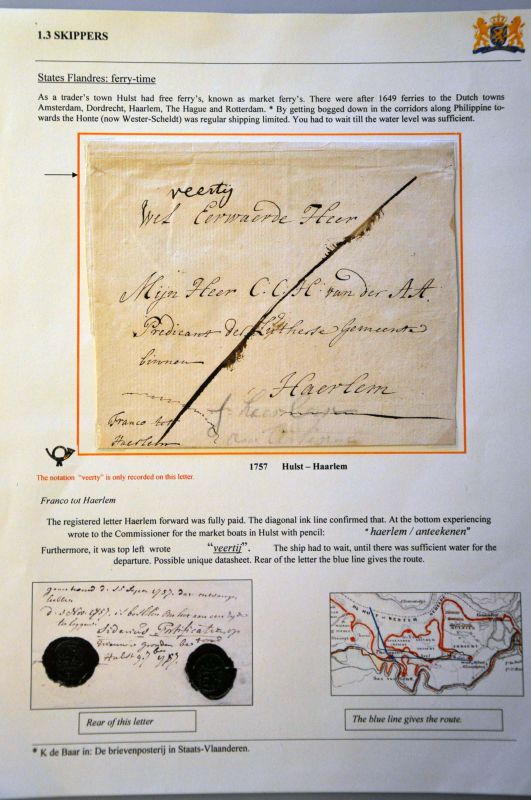 1.3 SKIPPERS
States Flandres: ferry-time
As a trader's town Hulst had free ferry's, known as market ferry's. There were after 1649 ferries to the Dutch towns
Amsterdam, Dordrecht, Haarlem, The Hague and Rotterdam. * By getting bogged down in the corridors along Philippine to-
wards the Honte (now Wester-Scheldt) was regular shipping limited. You had to wait till the water level was sufficient.
veertij
Wel Eerwaerde Heer
Mijn Heer C. C. H. van der AA.
Predicant der Lutherse Gemeente
binnen
Haerlem
Franco tot
Haerlem
1757 Hulst – Haarlem
The notation "veerty" is only recorded on this letter.
Franco tot Haerlem
The registered letter Haerlem forward was fully paid. The diagonal ink line confirmed that. At the bottom experiencing
wrote to the Commissioner for the market boats in Hulst with pencil: "haerlem / anteekenen"
Furthermore, it was top left wrote "veertij". The ship had to wait, until there was sufficient water for the
departure. Possible unique datasheet. Rear of the letter the blue line gives the route.
Rear of this letter
The blue line gives the route.
* K de Baar in: De brievenposterij in Staats-Vlaanderen.